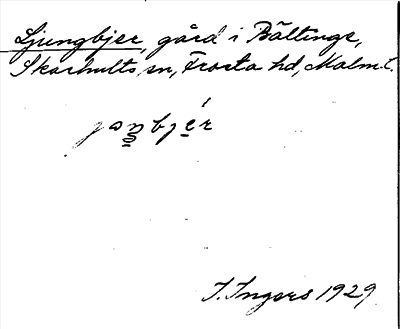 Ljungbjer, gård i Bältinge,
Skarhults sn, Frosta hd, Malm. l.
I. Ingers 1929